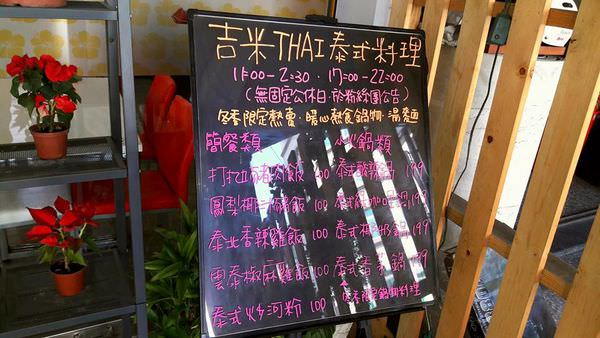 吉米THAI泰式料理
11:00-2:30·17:00-22:00
(無固定公休日·於粉絲團公告)
冬季限定熱賣·暖心熱食鍋物·湯麵
簡餐類
打拋豬肉飯 100
鳳梨椰汁鍋飯 100
泰北香辣雞飯 100
雲泰椒麻雞飯 100
泰式炒河粉 100
火鍋類
泰式酸辣鍋 199
泰式 鍋 199
泰式椰奶鍋 199
泰式香茅鍋 199
冬季限定鍋物料理